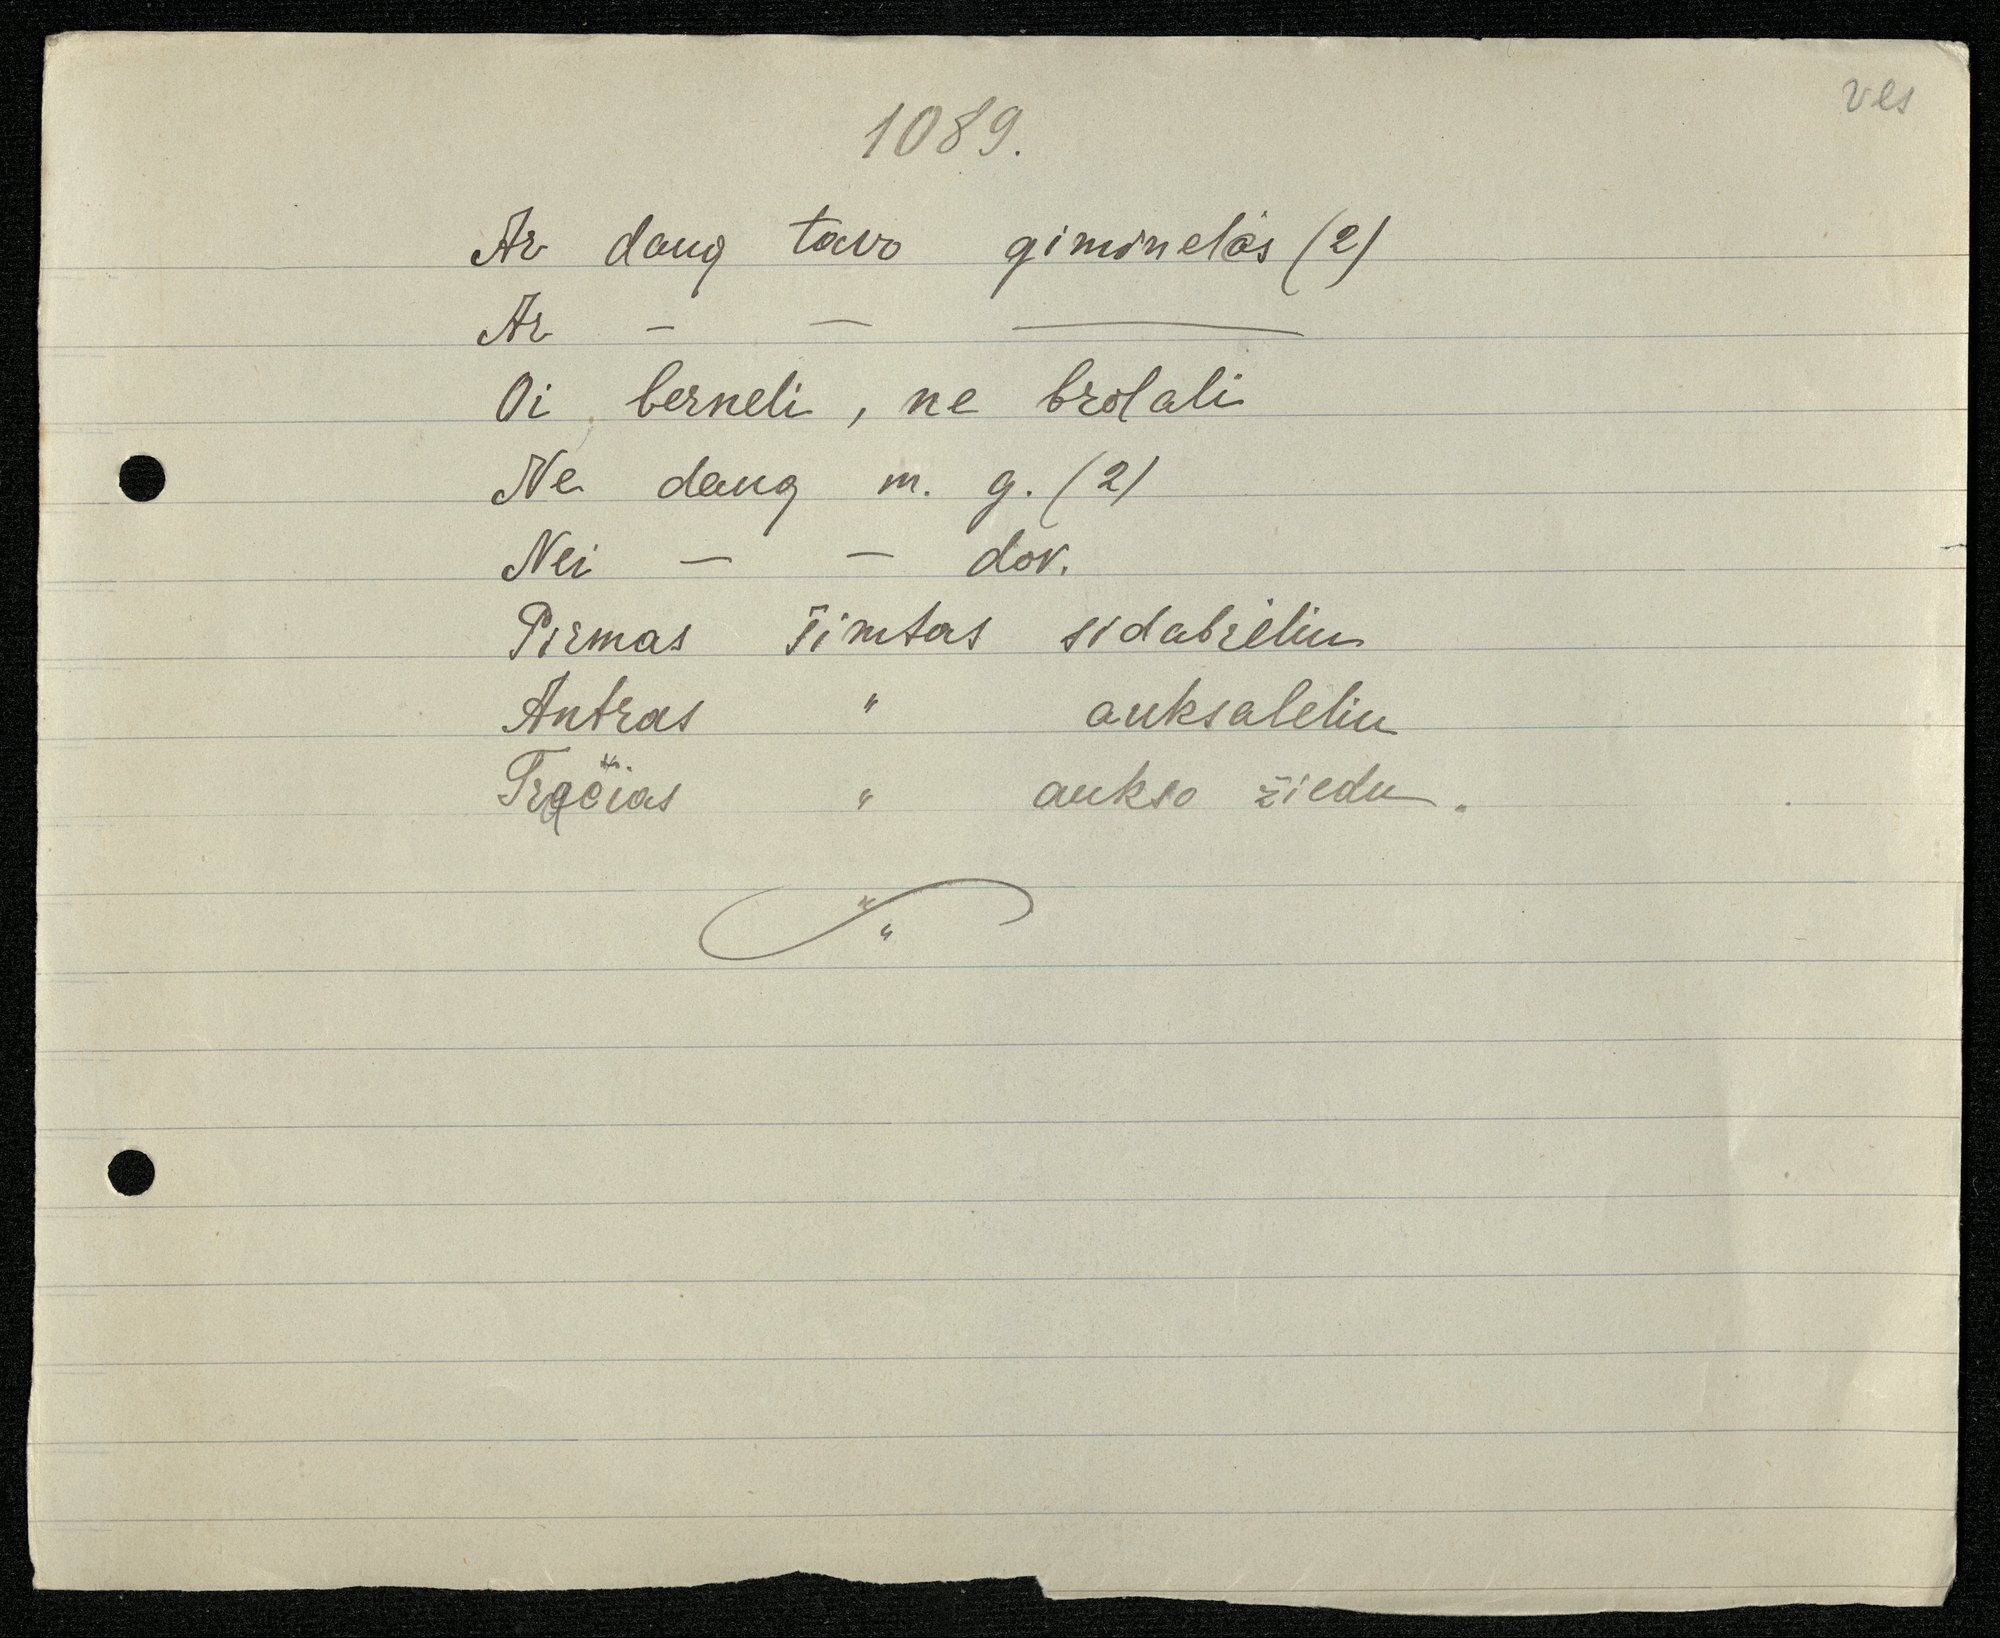 ves
1089.
Ar daug tavo giminelės (2)
Ar — — —
Oi berneli, ne brolali
Ne daug m. g. (2)
Nei — — dov.
Pirmas šimtas sidabrėliu
Antras " auksaleliu
Tračias " aukso žiedu.